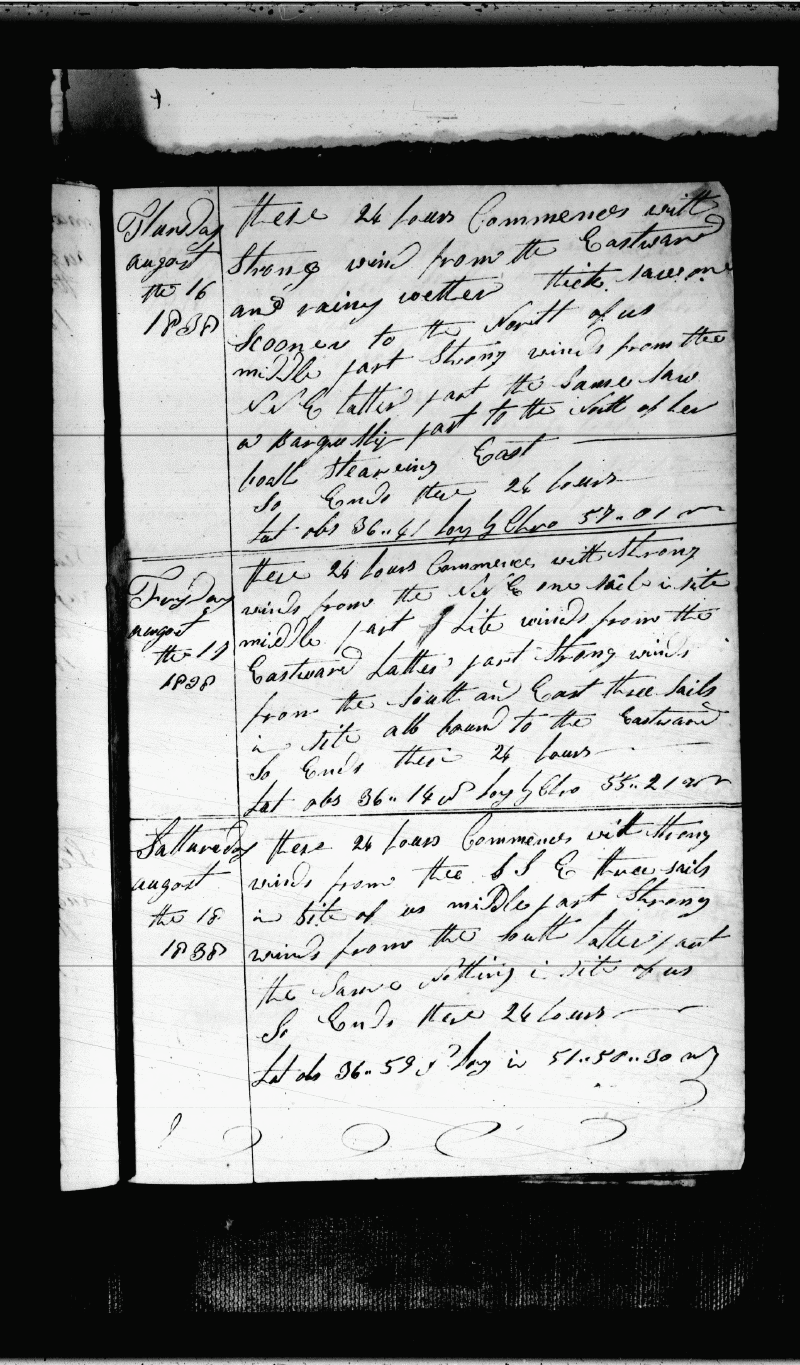 Thursday
augost
the 16
1838
these 24 hours Commences with
Strong wind from the Eastward
and rainy wether thick saw one
scooner to the North of us
middle part Strong winds from the
NNE latter part the Same saw
a Barque Ship part to the North of her
boath Steareing East
So Ends these 24 hours
Lat obs 36..41 Long by Chro 57..01
Fryday
augost
the 17
1838
these 24 hours Commences with Strong
winds from the NNE one sail in site
middle part Lite winds from the
Eastward Latter part Strong winds
from the South and East three sails
in site all bound to the Eastward
So Ends these 24 hours
Lat obs 36..14 Long by Chro 55..21
Satturday
augost
the 18
1838
these 24 hours Commences with Strong
winds from thee S S E three sails
in Site of us middle part Strong
winds from the South latter part
the Same Notting in Site of us
So Ends these 24 hours
Lat obs 36..59 Long in 51..50..30